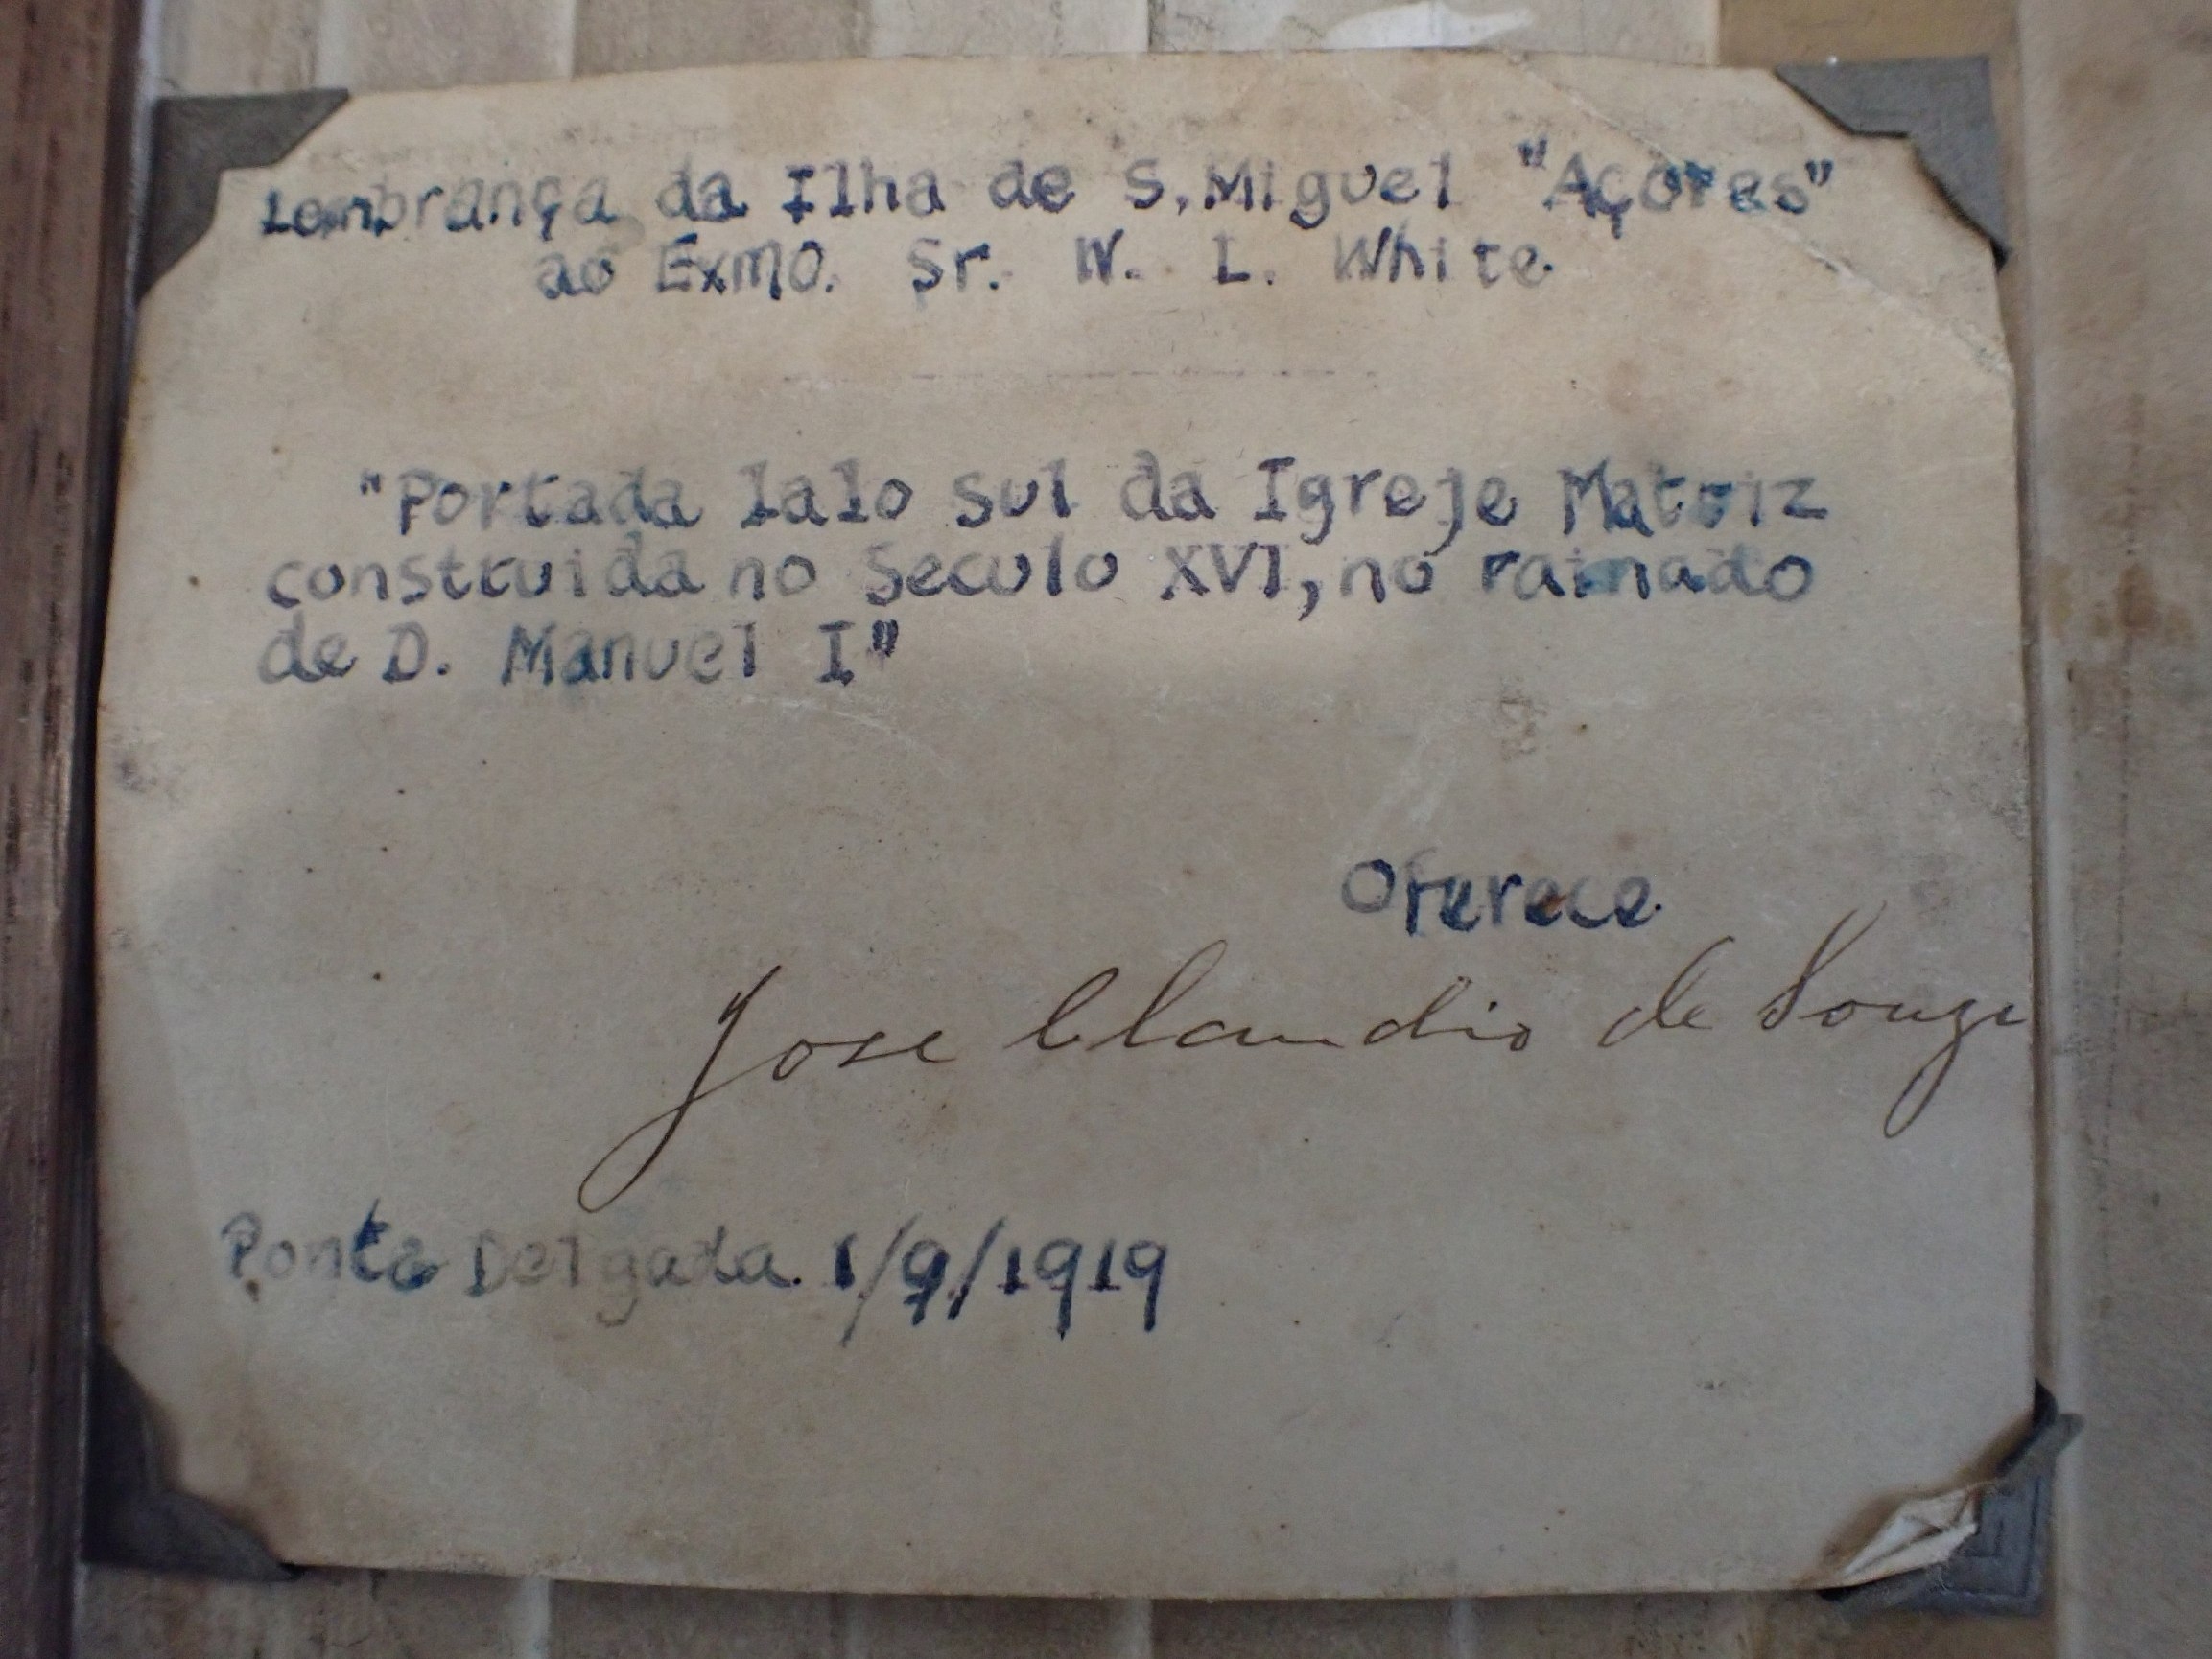 Lembrança da Ilha de S.Miguel "Açores"
ao Exmo. Sr. W. L. White
"Portada lalo sul da Igreje Matriz
construida no Seculo XVI, no rainado
de D. Manuel I"
Oferece
Jose Claudio de Souza
Ponta Delgada 1/9/1919